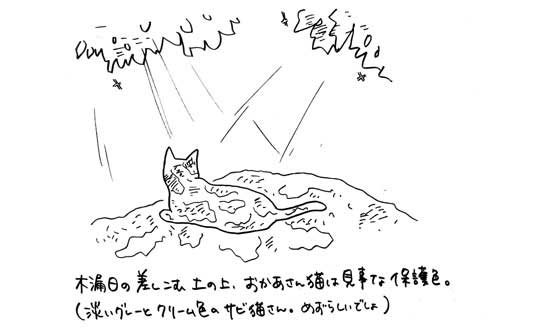 木漏日の差しこむ土の上、おかあさん猫は見事な保護色。
(淡いグレーとクリーム色のサビ猫さん。めずらしいでしょ)